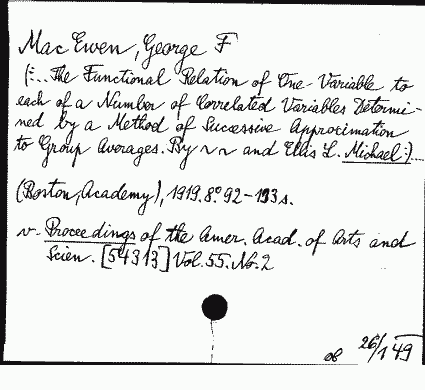 Mac Ewen, George F
(:.. The Functional Relation of One Variable to
each of a Number of Correlated Variables Determi-
ned by a Method of Successive Approximation
to Group Averages. By ~~ and Ellis L. Michael:)...
(Boston, Academy), 1919. 8º. 92-133 s.
v. Proceedings of the Amer. Acad. of Arts and
Scien. [54313] Vol. 55. No. 2
26/1 49